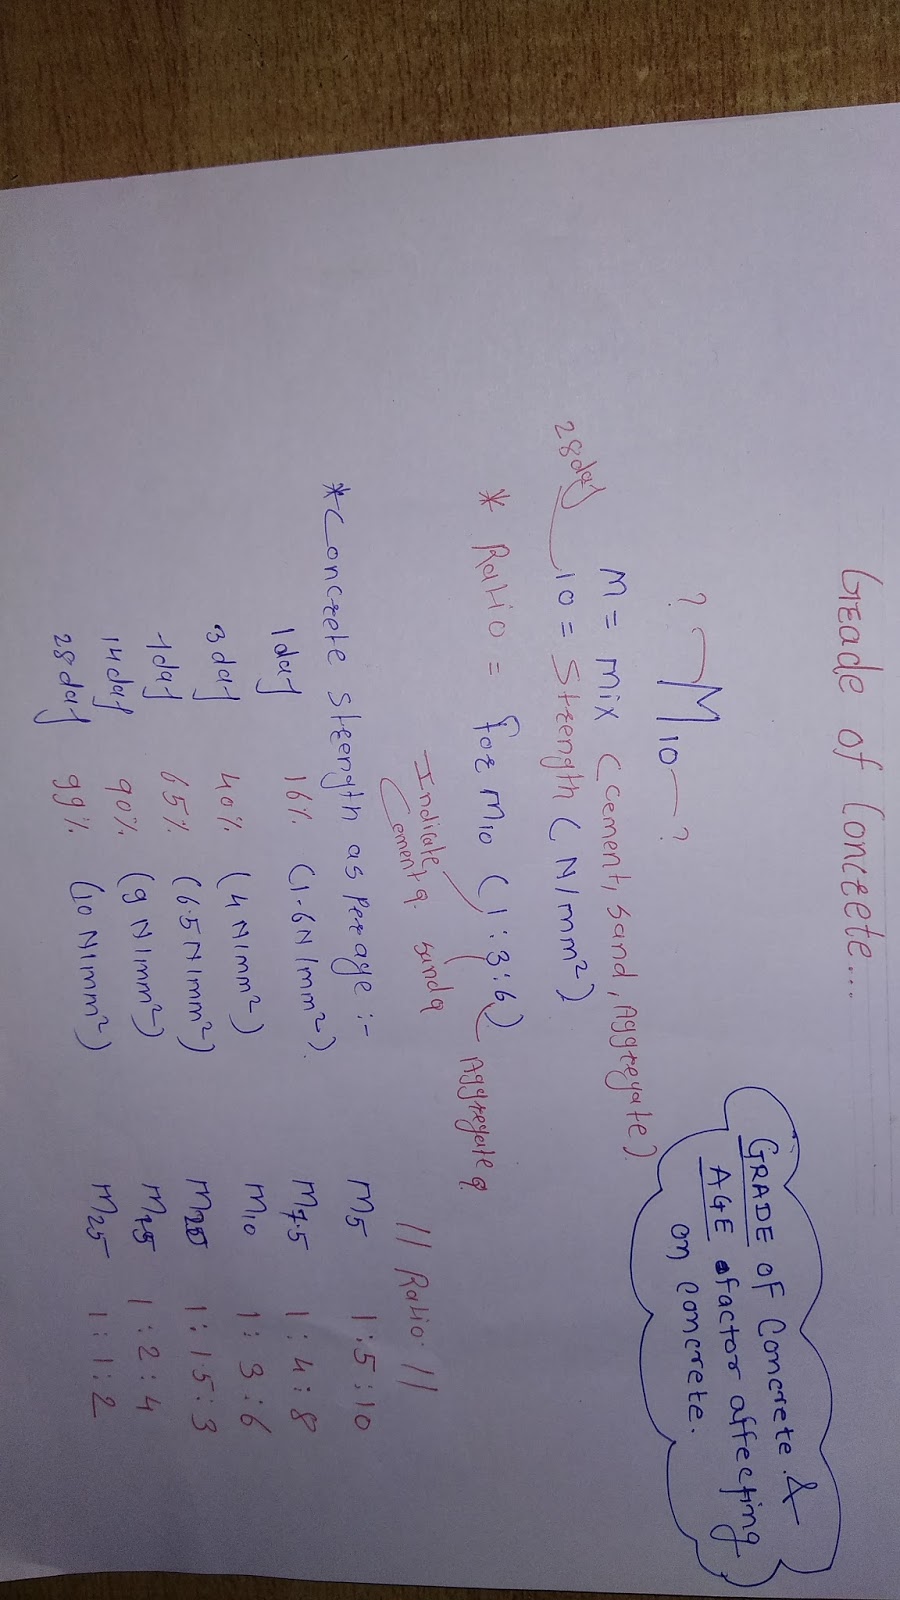 Grade of Concrete...
GRADE OF Concrete &
AGE factor affecting
on concrete.
? M10 ?
M = Mix (cement, sand, Aggregate)
28day 10 = Strength (N/mm²)
* Ratio = for M10 (1:3:6)
Indicate Cement q. sand q Aggregate q.
* Concrete strength as per age :-
1day 16% (1.6N/mm²)
3day 40% (4N/mm²)
7day 65% (6.5N/mm²)
14day 90% (9N/mm²)
28day 99% (10N/mm²)
// Ratio //
M5 1:5:10
M7.5 1:4:8
M10 1:3:6
1:1.5:3
1:2:4
M25 1:1:2